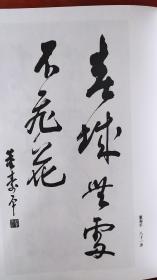 春城無處
不飛花
董壽平